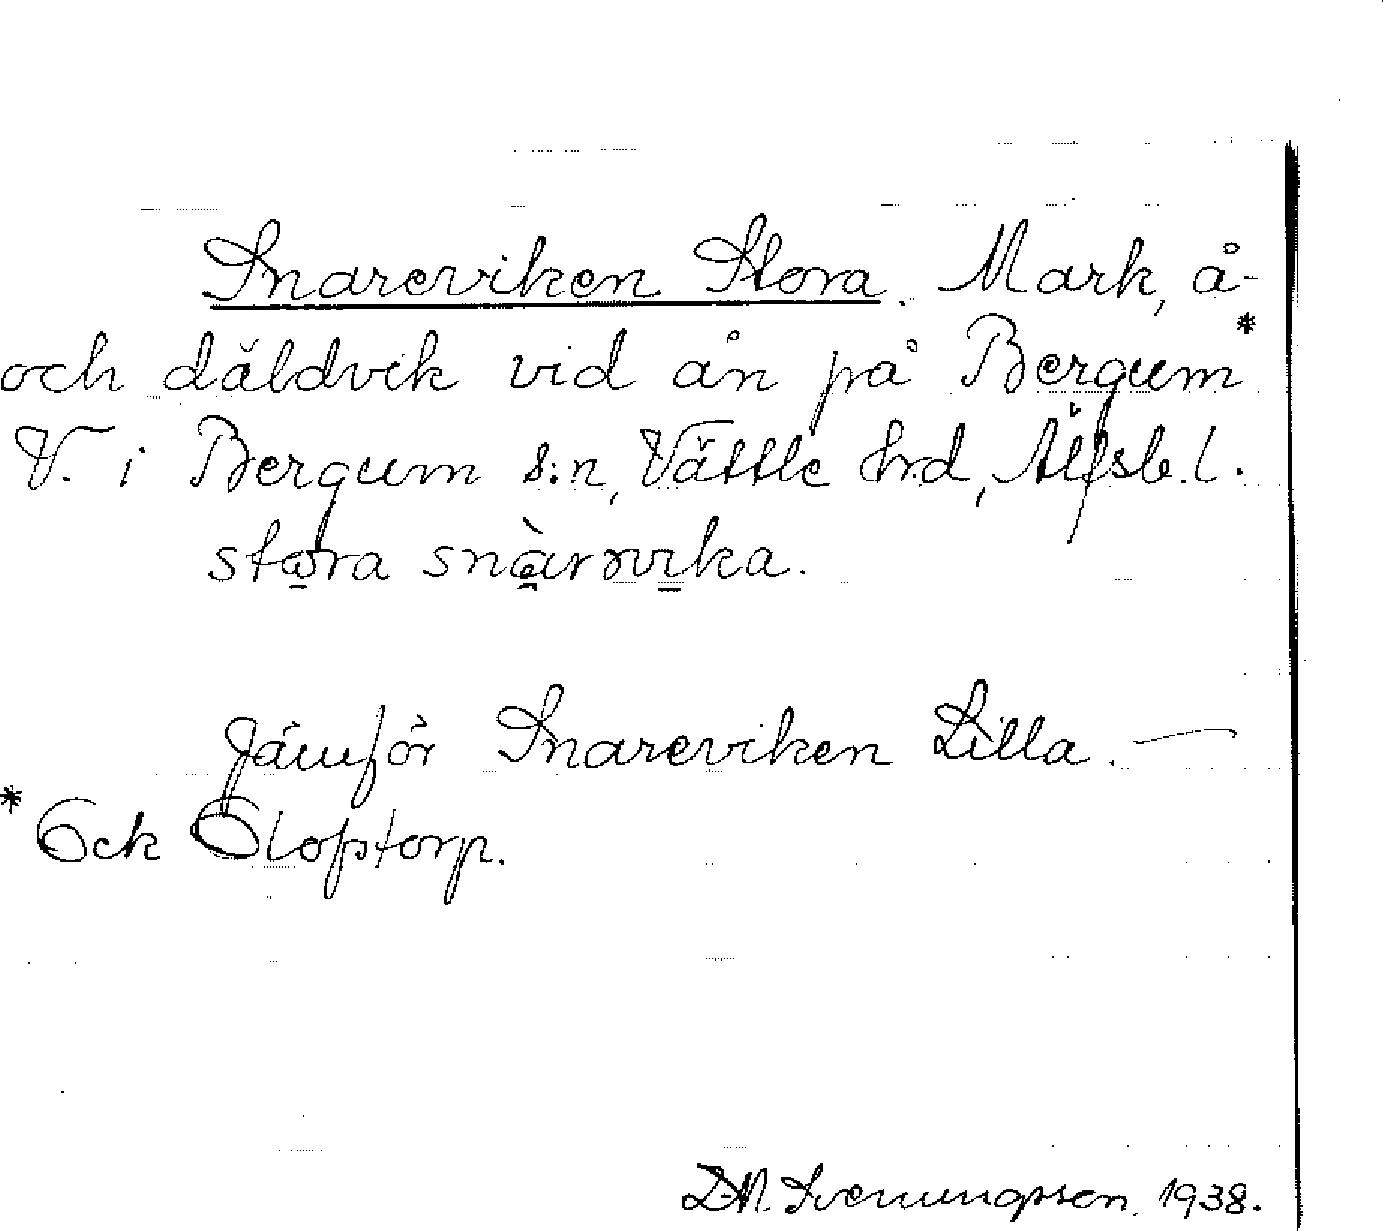 Snareviken Stora. Mark, å-
och däldvik vid ån på Bergum*
V. i Bergum s:n, Vättle hrd, Älfsb. l.
stora snàrəvika.
Jämför Snareviken Lilla. —
* Och Olofstorp.
D.N. Svenungsson. 1938.